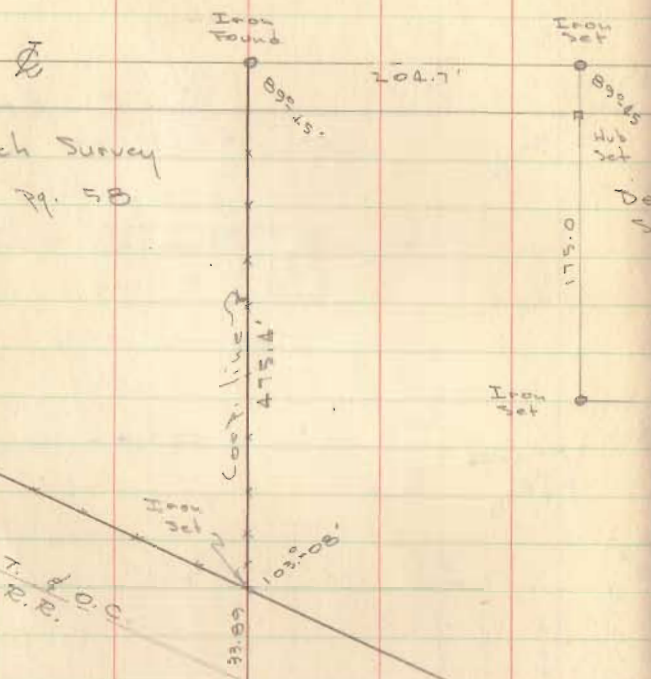 Iron
Found
Iron
Set
℄
204.7'
89°45'
89°45
Hub
Set
ch Survey
pg. 58
De
175.0
Corp. line
475.4'
Iron
Set
Iron
Set
103°-08'
T. & O.C.
R.R.
33.89